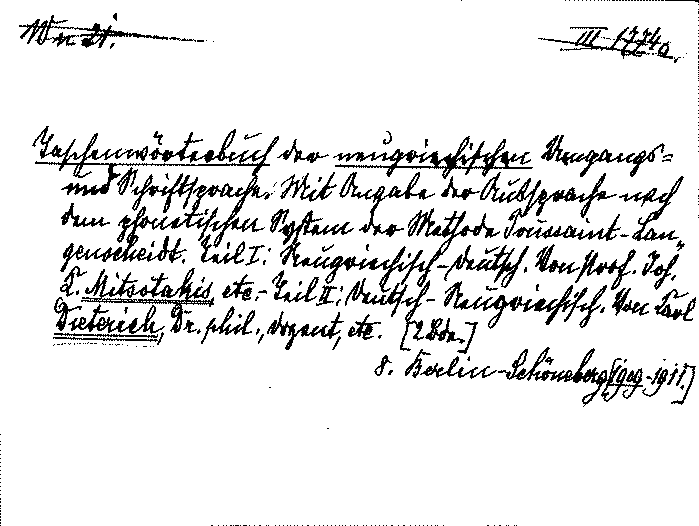 Wn 21.
III 1774a.
Taschenwörterbuch der neugriechischen Umgangs-
und Schriftsprache. Mit Angabe der Aussprache nach
dem phonetischen System der Methode Toussaint-Lan-
genscheidt. Teil I: Neugriechisch-Deutsch. Von Prof. Joh.
K. Mitsotakis, etc.- Teil II: Deutsch-Neugriechisch. Von Karl
Dieterich, Dr. phil., Dozent, etc. [2 Bde.]
8. Berlin-Schöneberg [1909-1911.]